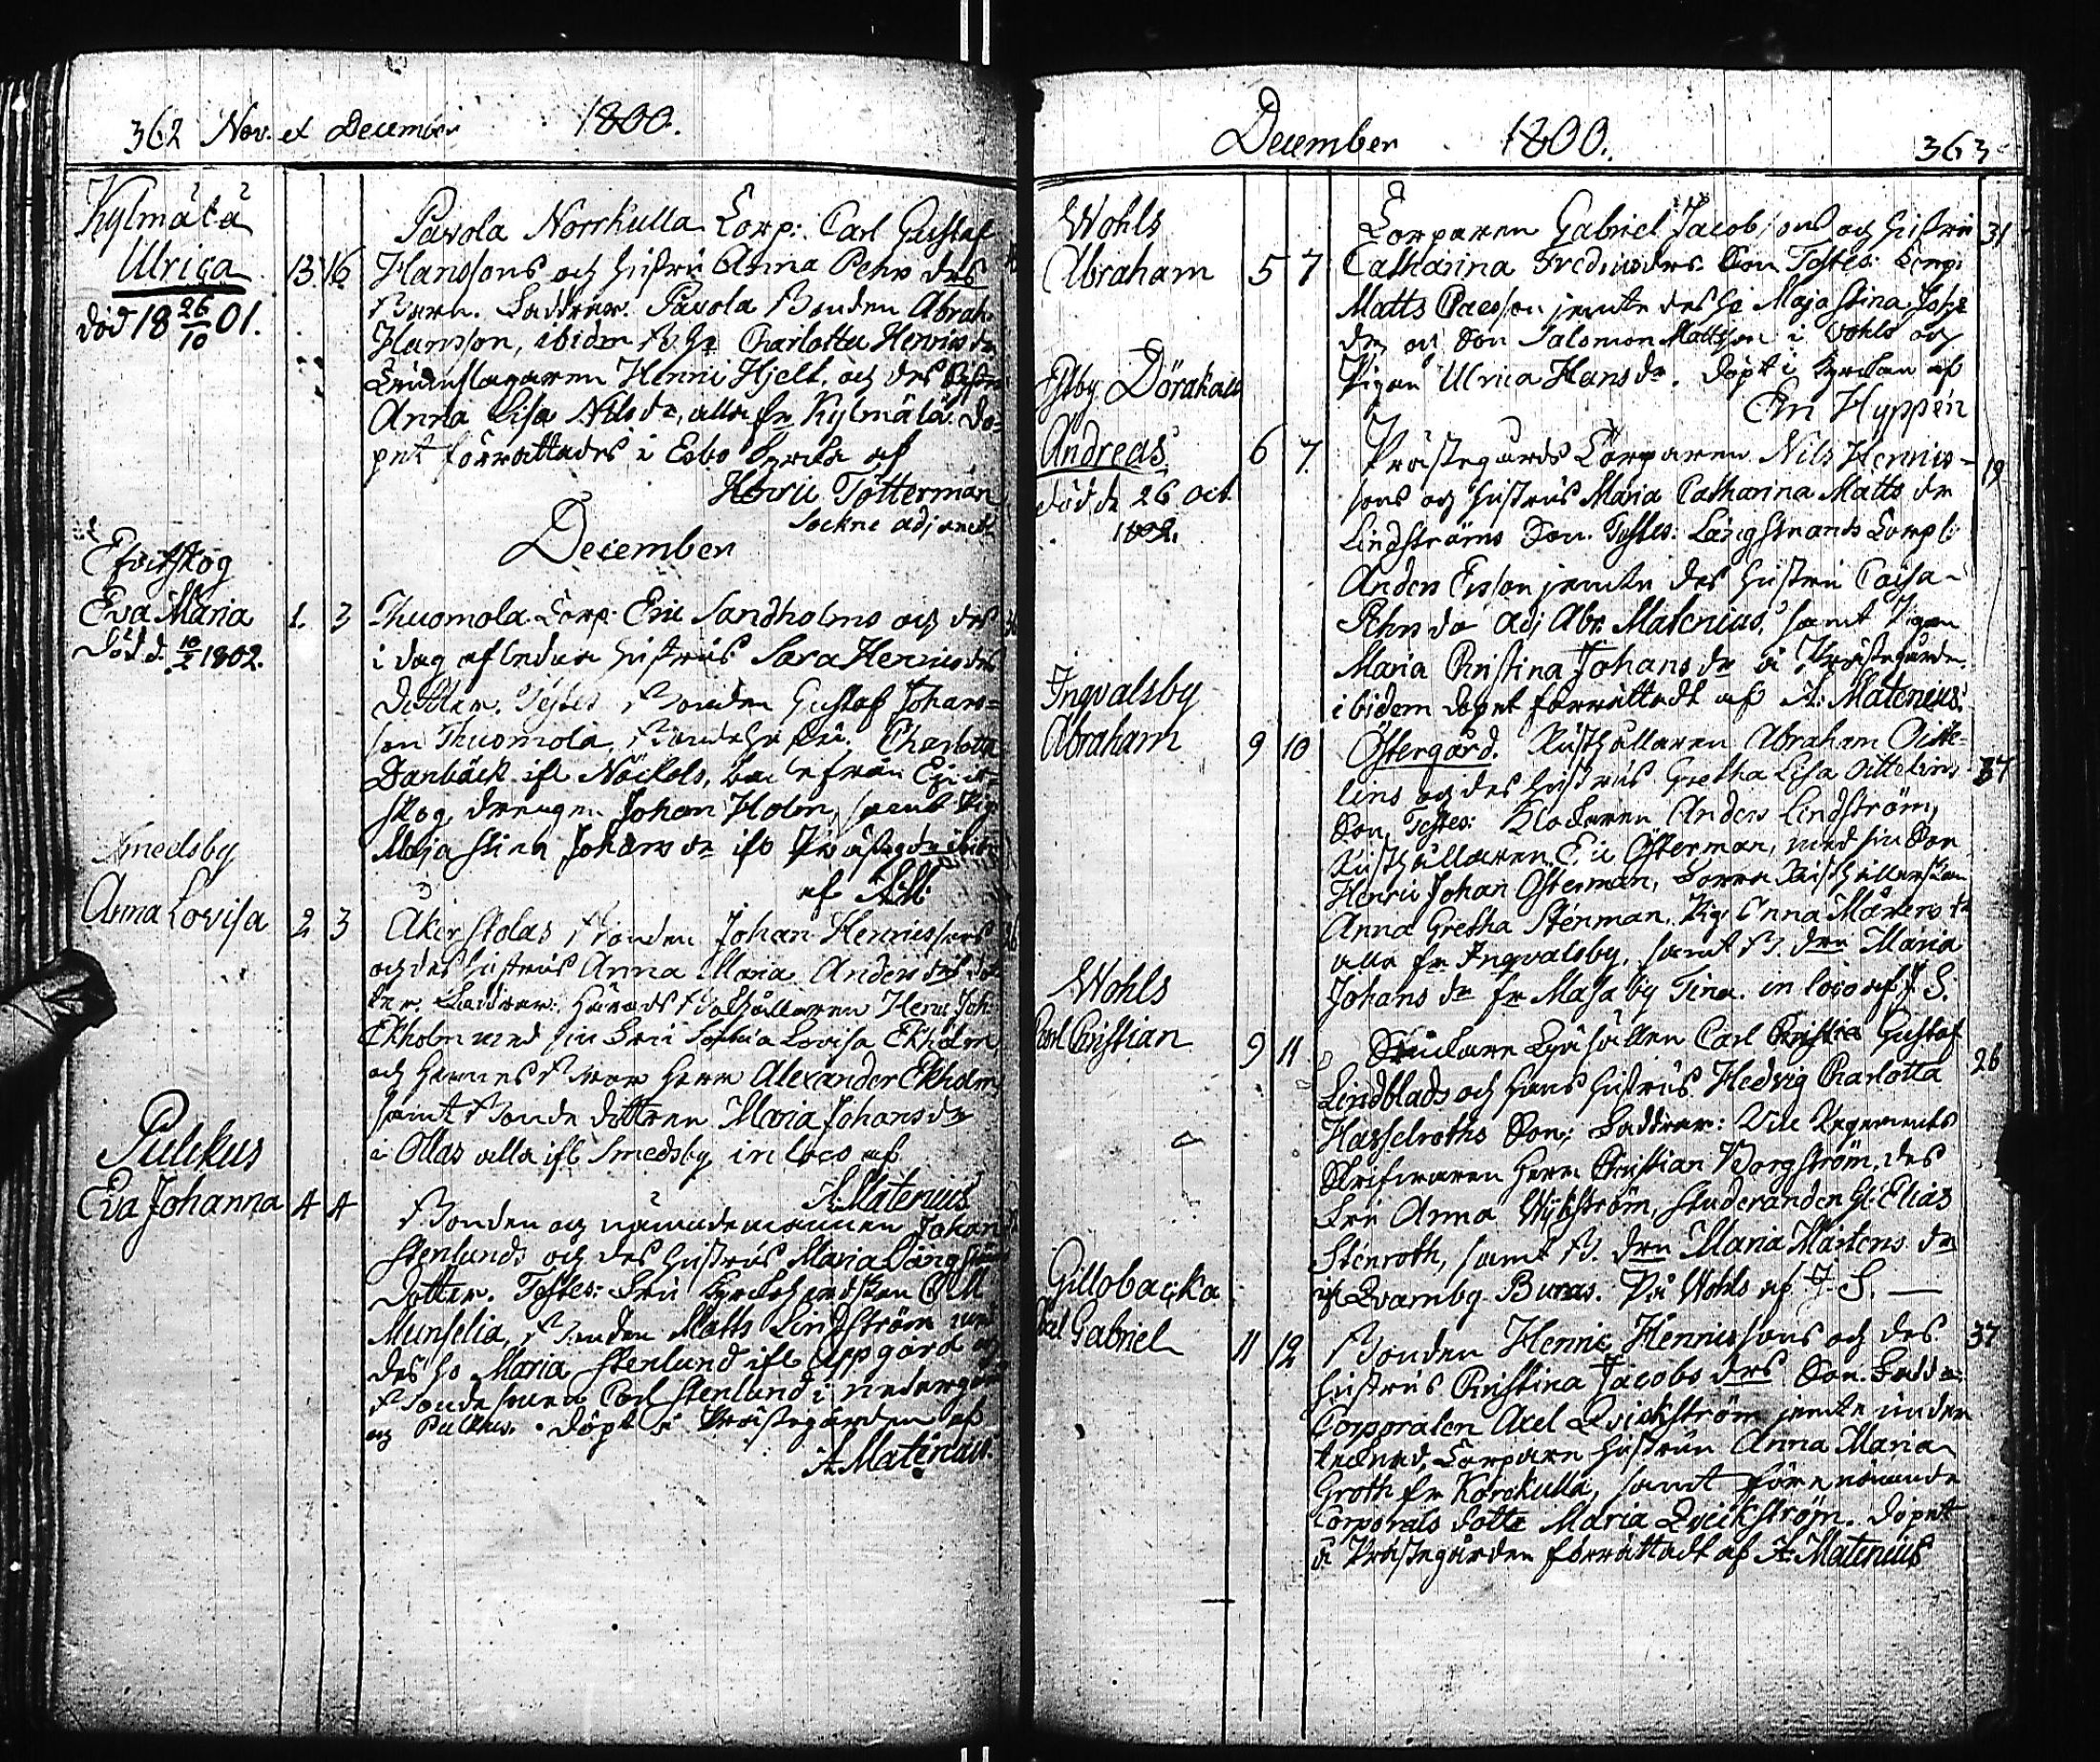 362 Nov. et December 1800.
Kylmälä
Ulrica 13. 16
död 18 26/10 01.
Pavola Norrkulla Torp: Carl Gustaf
Hanssons och hustru Anna Pehrs drs
Barn. Faddrar. Pavola Bonden Abrah.
Hansson, ibidem B. hu Charlotta Henricsdr
Henric Hjelt, och des
Anna Lisa Nilsdr, alla fr Kylmälä. Do-
pet förrättades i Esbo Kyrka af
Henric Tötterman
Sockne adjunct
December
Evitskog
Eva Maria 1. 3
död d. 10/2 1802.
Thuomola Torp. Eric Sandholms och des
i dag afledna hustrus Sara Henricsdrs
dotter. Testes Bonden Gustaf Johans-
son Thuomola, Charlotta
Danbäck ifl Näckols, från Evit-
skog drengen Johan Holm, samt Pig
Maja Stina Johans dr ifl
af A.M.
Smedsby
Anna Lovisa 2 3
Åkerstolas Bonden Johan Henricssons
och des hustrus Anna Maria Anders drs dot-
ter. Faddrar: Härads Henr. Joh.
Ekholm med sin Fru Sophia Lovisa Ekholm,
och hennes Herr Alexander Ekholm
samt Bonde dottren Maria Johansdr
i Ollas alla ifl Smedsby in loco af
A. Matenius
Pulckus
Eva Johanna 4 4
Bonden och nämndemannen Johan
Stenlunds och des hustrus Maria Långström
dotter. Testes: Fru C M
Munselia, Bonden Matts Lindström med
des hu Maria Stenlund ifl Uppgård och
Bonde sonen Carl Stenlund i nedergård
og Pulkus. döpt i Prästegården af
A Matenius.
December 1800. 363
Wohls
Abraham 5 7
Torparen Gabriel Jacobsons och hustru 31
Catharina Fredricsdrs Son Testes: Torp:
Matts Claesson jemte des hu Maja Stina Johs
dr, och Son Salomon Mattsson i Vohls och
Pigan Ulrica Hansdr. döpt i Kyrkan af
Em Hyppén
Dörakais
Andreas 6 7.
död d. 26 Oct
1802.
Prästegårds Torparen Nils Henrics- 19
sons och hustrus Maria Catharina Matts dr
Lindströms Son. Testes: Långstrands Torp:
Anders Ersson jemte des hustru Caisa
Pehrs dr Adj Abr. Matenius, samt Pigan
Maria Christina Johans dr i Prästegården.
ibidem dopet förrättadt af A. Matenius.
Ingvalsby
Abraham 9 10
Östergård. Rusthållaren Abraham Oitte-
lins och des hustrus Gretha Lisa Oittelins 37
Son, Testes: Klockaren Anders Lindström,
Rusthållaren Eric Österman, med sin Son
Henric Johan Österman, Torra Rusthållerskan
Anna Gretha Stenman. Pig: Anna Mårtens dr
alla fr Ingvalsby, samt B. drn Maria
Johans dr fr Masaby Tina. in loco af J. S.
Wohls
Carl Christian 9 11
Carl Gustaf 26
Lindblads och hans hustrus Hedvig Charlotta
Hasselroths Son; Faddrar: Vice Regements
Skrifvaren Herr Christian Borgström, des
Fru Anna Wykström, Studeranden Gl: Elias
Stenroth, samt B. drn Maria Mårtens dr
ifl Qvarnby Buras. På Wohls af J. S. —
Gillobacka
Carl Gabriel 11 12
Bonden Henric Henricssons och des 37
hustrus Christina Jacobs drs Son. Fadd:
Corporalen Axel Qvickström jemte under
tecknad, Torpare hustrun Anna Maria
Groth fr Korskulla, samt förenämnde
Corporals dottr Maria Qvickström. dopet
i Prästegården förrättadt af A. Matenius